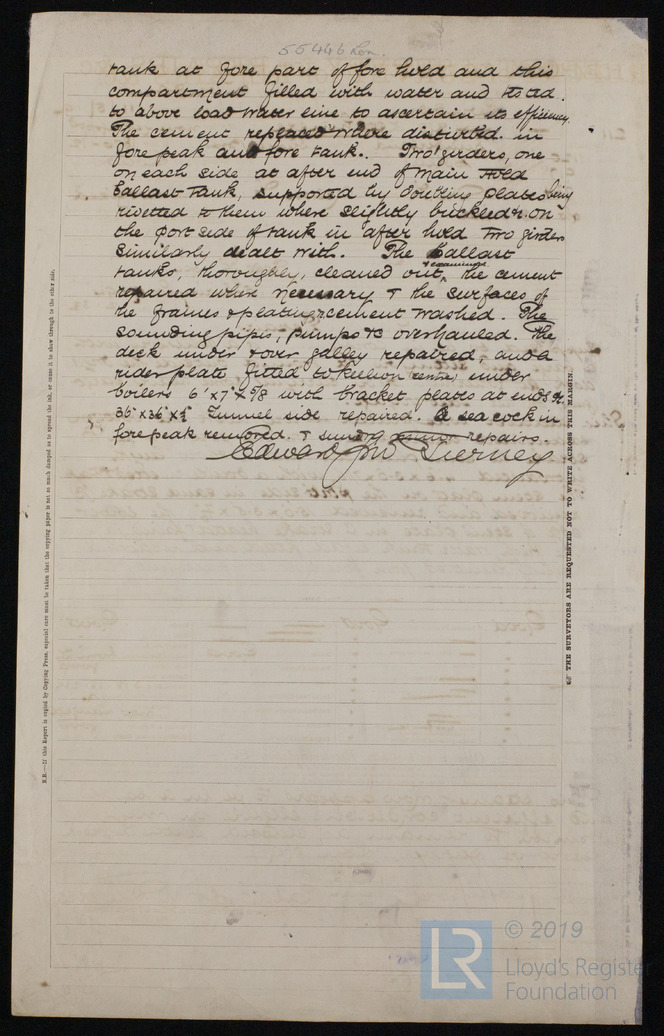 55446 Lon.
tank at fore part of fore hold and this
compartment filled with water and tested
to above load water line to ascertain its efficiency.
The cement replaced where disturbed in
fore peak and fore tank. Two girders, one
on each side at after end of main hold
ballast tank, supported by doubling plates being
rivetted to them where slightly buckled & on
the port side of tank in after hold two girders
similarly dealt with. The ballast
tanks, thoroughly, cleaned out, & examined the cement
repaired where necessary & the surfaces of
the frames & plating cement washed. The
sounding pipes, pumps &c overhauled. The
deck under & over galley repaired, and a
rider plate fitted to keelson under
boilers 6' x 7" x 5/8 with bracket plates at ends
36" x 36" x Tunnel side repaired. A sea cock in
fore peak removed. & sundry minor repairs.
Edward Tierney
N.B.—If this Report is copied by Copying Press, especial care must be taken that the copying paper is not so much damped as to spread the ink, or cause it to show through to the other side.
THE SURVEYORS ARE REQUESTED NOT TO WRITE ACROSS THIS MARGIN.
LR
© 2019
Lloyd's Register
Foundation